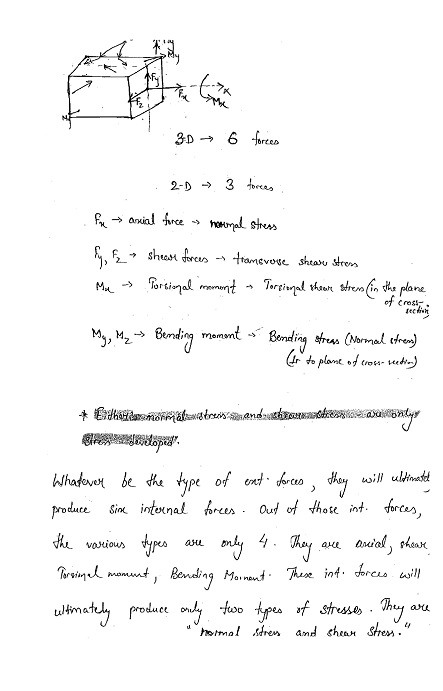 My
Fy
Fx
x
Fz
Mx
M
3-D → 6 forces
2-D → 3 forces
Fx → axial force → normal stress
Fy, Fz → shear forces → transverse shear stress
Mx → Torsional moment → Torsional shear stress (in the plane
of cross-
section)
My, Mz → Bending moment → Bending stress (Normal stress)
(Ir to plane of cross-section)
* Either normal stress and shear stress are only
stress developed.
Whatever be the type of ext. forces, they will ultimately
produce six internal forces. Out of those int. forces,
the various types are only 4. They are axial, shear
Torsinal moment, Bending Moment. These int. forces will
ultimately produce only two types of stresses. They are
"normal stress and shear stress."